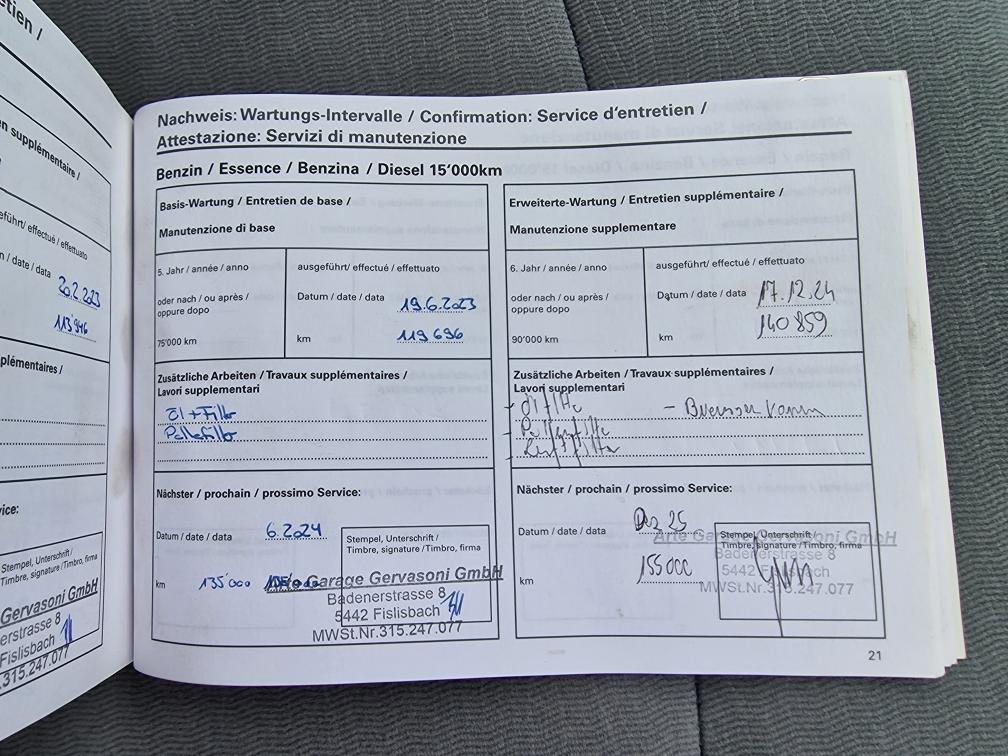 tien /
en supplémentaire /
geführt/ effectué / effettuato
n / date / data
20.2.2023
113'946
plémentaires /
vice:
Stempel, Unterschrift/
Timbre, signature /Timbro, firma
Gervasoni GmbH
erstrasse 8
Fislisbach
.315.247.077
Nachweis: Wartungs-Intervalle / Confirmation: Service d'entretien /
Attestazione: Servizi di manutenzione
Benzin / Essence / Benzina / Diesel 15'000km
Basis-Wartung / Entretien de base /
Manutenzione di base
5. Jahr / année / anno
ausgeführt/ effectué / effettuato
oder nach / ou après /
oppure dopo
Datum / date / data 19.6.2023
75'000 km
km 119 696
Zusätzliche Arbeiten / Travaux supplémentaires /
Lavori supplementari
Öl + Filter
Pollenfilter
Nächster / prochain / prossimo Service:
Datum / date / data 6.2024
Stempel, Unterschrift /
Timbre, signature /Timbro, firma
km 135'000
Arte Garage Gervasoni GmbH
Badenerstrasse 8
5442 Fislisbach
MWSt.Nr.315.247.077
Erweiterte-Wartung / Entretien supplémentaire /
Manutenzione supplementare
6. Jahr / année / anno
ausgeführt/ effectué / effettuato
oder nach / ou après /
oppure dopo
Datum / date / data 17.12.24
90'000 km
km 140 859
Zusätzliche Arbeiten / Travaux supplémentaires /
Lavori supplementari
Nächster / prochain / prossimo Service:
Datum / date / data Dez 25
Stempel, Unterschrift/
Timbre, signature /Timbro, firma
km 155 000
Arte Garage Gervasoni GmbH
Badenerstrasse 8
5442 Fislisbach
MWSt.Nr.315.247.077
21